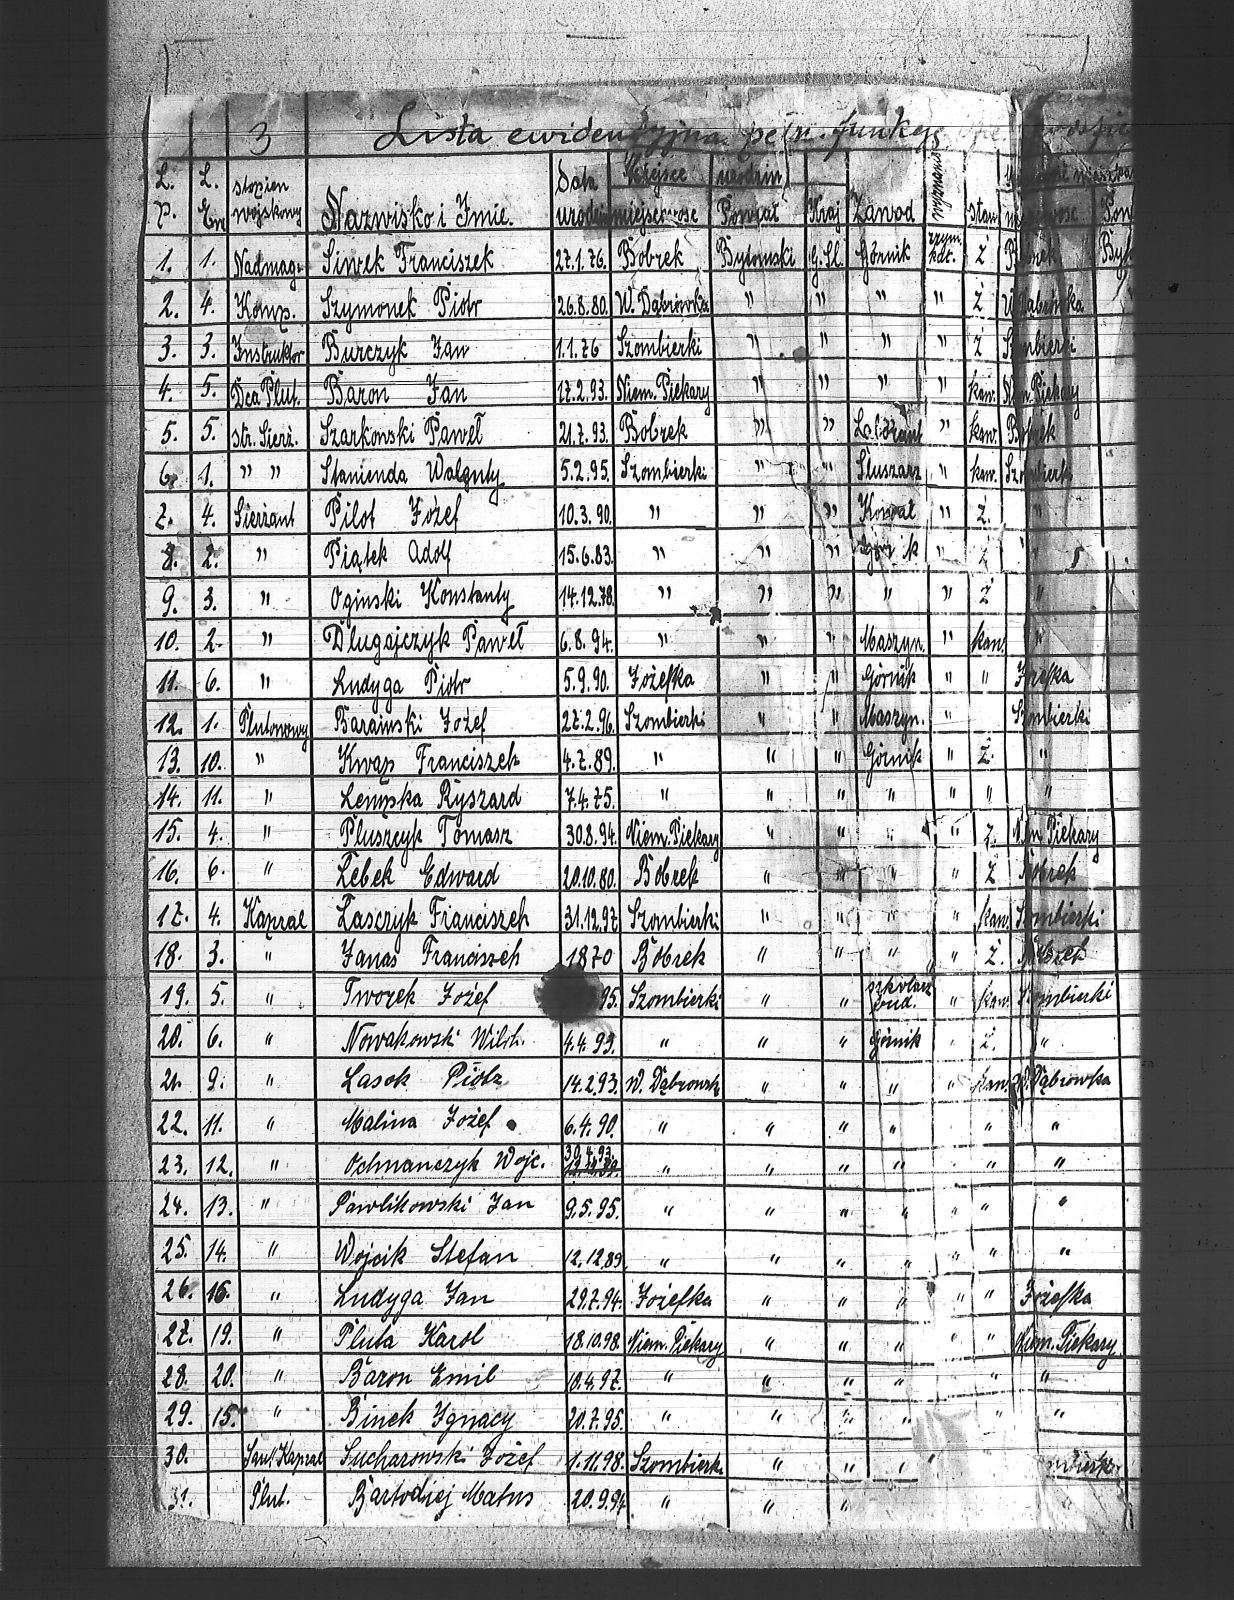 3 Lista ewidencyjna pełn. funkcje
L. p. L. Ew. stopien wojskowy Nazwisko i Imie. Data urodz. Miejsce urodzin miejscowosc Powiat Kraj Zawod wyznanie stan
1. 1. Nadmag. Siwek Franciszek 27.1.76. Bobrek Bytomski G. Sl. Górnik rzym. kat. Ż Bobrek
2. 4. Komp. Szymonek Piotr 26.8.80. W. Dąbrówka " " " " Ż W. Dąbrowka
3. 3. Instruktor Burczyk Jan 1.1.76 Szombierki " " " " Ż Szombierki
4. 5. Dca Plut. Baron Jan 17.2.93. Niem. Piekary " " " " kaw. Niem. Piekary
5. 5. str. Sierż. Szarkowski Paweł 21.7.93. Bobrek " " " kaw. Bobrek
6. 1. " " Stanienda Walenty 5.2.95. Szombierki " " Slusarz " kaw. Szombierki
7. 4. Sierżant Pilot Józef 10.3.90. " " " Kowal " Ż. "
8. 2. " Piątek Adolf 15.6.83. " " " Górnik " Ż "
9. 3. " Oginski Konstanty 14.12.78. " " " " " Ż "
10. 2. " Dlugajczyk Paweł 6.8.94. " " " Maszyn. " kaw. "
11. 6. " Ludyga Piotr 5.9.90. Józefka " " Górnik " " Józefka
12. 1. Plutonowy Barański Józef 27.2.96. Szombierki " " Maszyn. " Szombierki
13. 10. " Kwap Franciszek 4.7.89. " " " Górnik " Ż. "
14. 11. " Lempska Ryszard 7.4.75. " " " " " " "
15. 4. " Pluszczyk Tomasz 30.8.94. Niem. Piekary " " " " Ż. Niem. Piekary
16. 6. " Żebek Edward 20.10.80. Bobrek " " " " Ż Bobrek
17. 4. Kapral Łasczyk Franciszek 31.12.97. Szombierki " " " " kaw. Szombierki
18. 3. " Janas Franciszek 1870 Bobrek " " " " Ż. Bobrek
19. 5. " Tworek Józef 95. Szombierki " " bud. " kaw. Szombierki
20. 6. " Nowakowski Wilh. 4.4.99. " " " Górnik " Ż. "
21. 9. " Lasok Piotr 14.2.93. W. Dąbrowsk " " " " kaw. W. Dąbrowka
22. 11. " Malina Józef 6.4.90. " " " " " "
23. 12. " Ochmanczyk Wojc. 30.4.93. " " " " " "
24. 13. " Pawlikowski Jan 9.5.95. " " " " " " "
25. 14. " Wojcik Stefan 12.12.89. " " " " " " "
26. 16. " Ludyga Jan 29.7.94. Józefka " " " " " Józefka
27. 19. " Pluta Karol 18.10.98. Niem. Piekary " " " " " Niem. Piekary
28. 20. " Baron Emil 10.4.97. " " " " " "
29. 15. " Binek Ignacy 20.7.95. " " " " " " "
30. Sanit. Kapral Sucharowski Józef 1.11.98. Szombierk. " " " "
31. Plut. Bartodziej Matus 20.9.94 " " " "